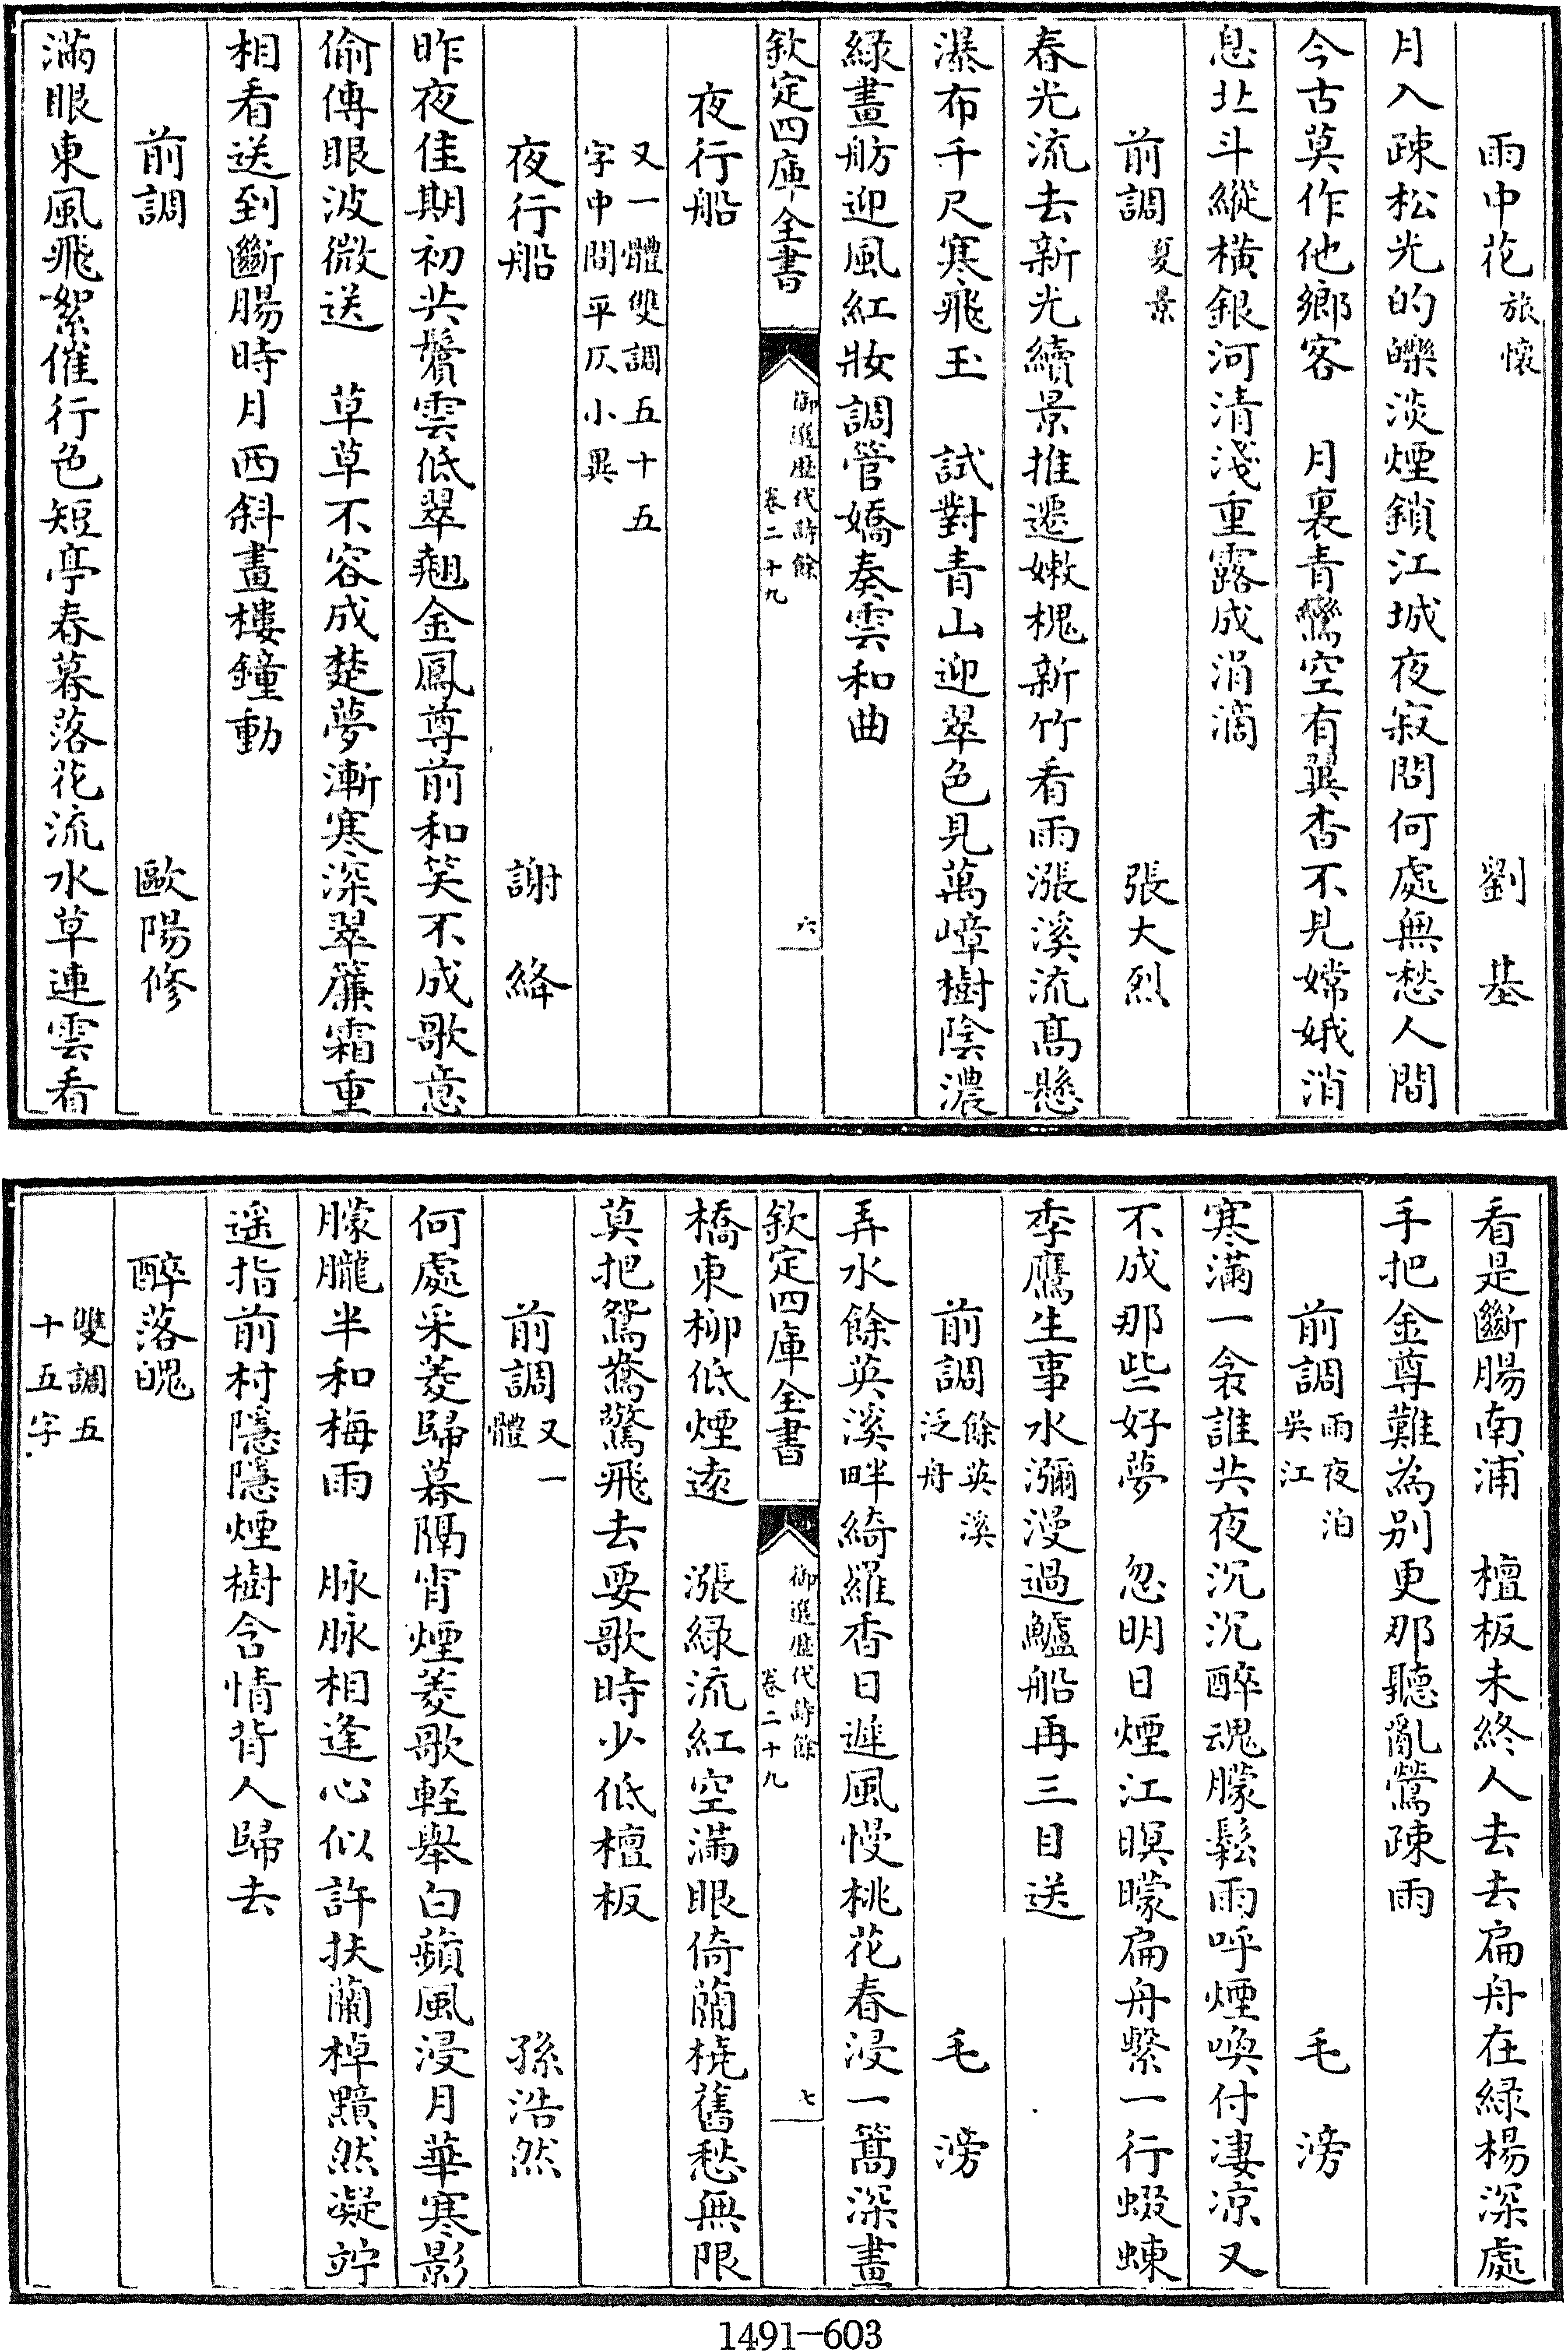 雨中花旅懷　劉基
月入疎松光的皪淡煙鎖江城夜寂問何處無愁人間
今古莫作他鄉客　月裏青鸞空有翼杳不見嫦娥消
息北斗縱橫銀河清淺重露成涓滴
前調夏景　張大烈
春光流去新光續景推遷嫩槐新竹看雨漲溪流高懸
瀑布千尺寒飛玉　試對青山迎翠色見萬嶂樹陰濃
綠畫舫迎風紅妝調管嬌奏雲和曲
欽定四庫全書　御選歷代詩餘卷二十九　六
夜行船
又一體雙調五十五
字中間平仄小異
夜行船　謝絳
昨夜佳期初共鬢雲低翠翹金鳳尊前和笑不成歌意
偷傳眼波微送　草草不容成楚夢漸寒深翠簾霜重
相看送到斷腸時月西斜畫樓鐘動
前調　歐陽修
滿眼東風飛絮催行色短亭春暮落花流水草連雲看
看是斷腸南浦　檀板未終人去去扁舟在綠楊深處
手把金尊難為別更那聽亂鶯疎雨
前調雨夜泊吳江　毛滂
寒滿一衾誰共夜沉沉醉魂朦鬆雨呼煙喚付凄涼又
不成那些好夢　忽明日煙江暝曚扁舟繫一行蝃蝀
季鷹生事水瀰漫過鱸船再三目送
前調餘英溪泛舟　毛滂
弄水餘英溪畔綺羅香日遲風慢桃花春浸一篙深畫
欽定四庫全書　御選歷代詩餘卷二十九　七
橋東柳低煙遠　漲綠流紅空滿眼倚蘭橈舊愁無限
莫把鴛鴦驚飛去要歌時少低檀板
前調又一體　孫浩然
何處采菱歸暮隔宵煙菱歌輕舉白蘋風浸月華寒影
朦朧半和梅雨　脉脉相逢心似許扶蘭棹黯然凝竚
遥指前村隱隱煙樹含情背人歸去
醉落魄
雙調五
十五字
1491—603